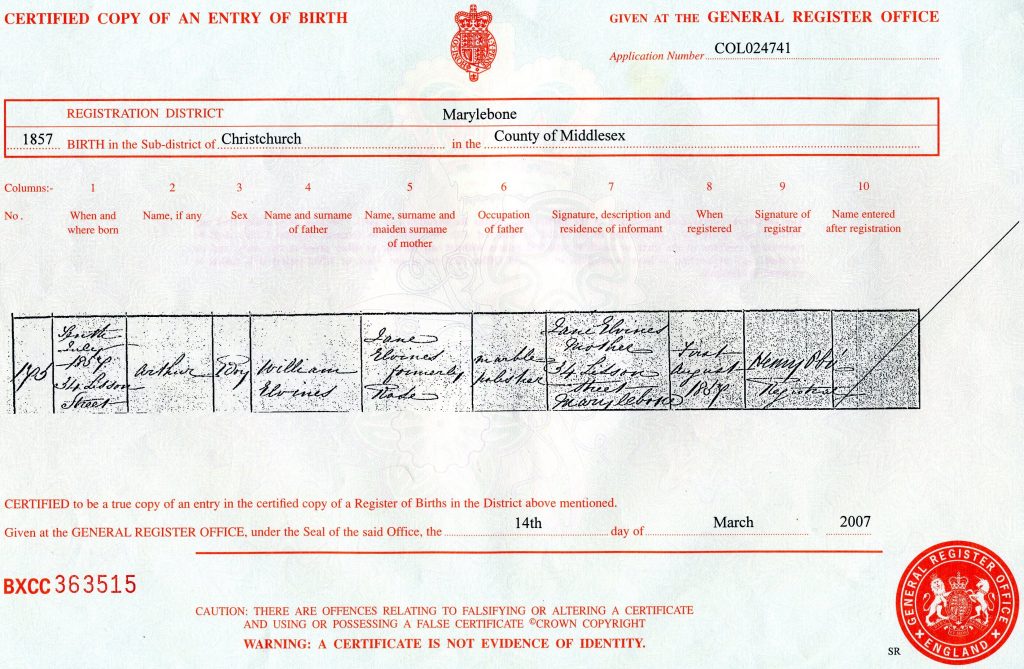 CERTIFIED COPY OF AN ENTRY OF BIRTH
GIVEN AT THE GENERAL REGISTER OFFICE
Application Number COL024741
REGISTRATION DISTRICT Marylebone
1857 BIRTH in the Sub-district of Christchurch in the County of Middlesex
Columns:- 1 2 3 4 5 6 7 8 9 10
No. When and where born
Name, if any
Sex
Name and surname of father
Name, surname and maiden surname of mother
Occupation of father
Signature, description and residence of informant
When registered
Signature of registrar
Name entered after registration
July
1857
34 Lisson
Street
Arthur
Boy
William
Elvines
Jane
Elvines
formerly
marble
polisher
Jane Elvines
Mother
34 Lisson
Street
Marylebone
First
August
1857
Henry
Registrar
CERTIFIED to be a true copy of an entry in the certified copy of a Register of Births in the District above mentioned.
Given at the GENERAL REGISTER OFFICE, under the Seal of the said Office, the 14th day of March 2007
BXCC 363515
CAUTION: THERE ARE OFFENCES RELATING TO FALSIFYING OR ALTERING A CERTIFICATE
AND USING OR POSSESSING A FALSE CERTIFICATE ©CROWN COPYRIGHT
WARNING: A CERTIFICATE IS NOT EVIDENCE OF IDENTITY.
SR
GENERAL REGISTER OFFICE
ENGLAND